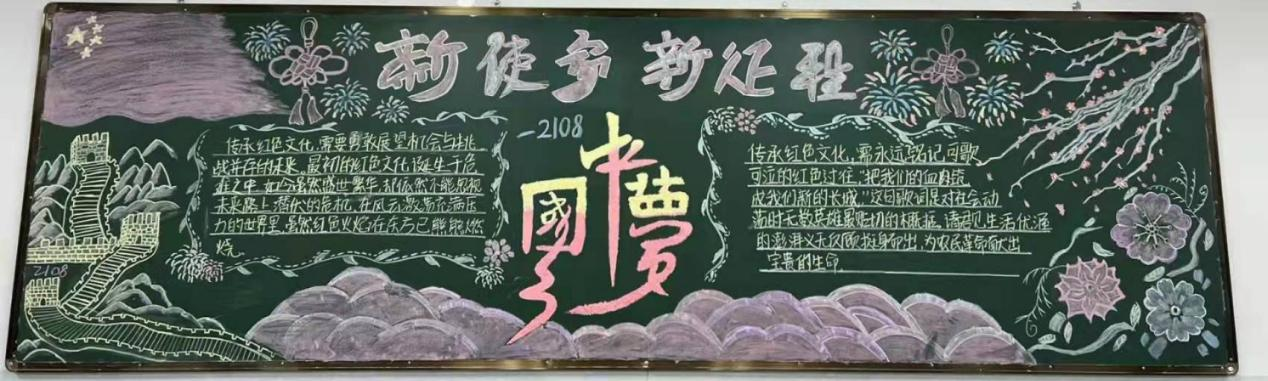 新使命 新征程
-2108
中国梦
传承红色文化,需要勇敢展望机会与挑
战并存的未来。最初的红色文化诞生于危
难之中,如今虽然盛世繁华,却依然不能忽视
未来路上潜伏的危机,在风云激荡充满压
力的世界里,虽然红色火焰在东方已熊熊燃
烧。
传承红色文化,需永远铭记可歌
可泣的红色过往。"把我们的血肉筑
成我们新的长城,"这句歌词是对在会动
荡时无数英雄最贴切的概括,请 生活优渥
的 义无反顾挺身而出,为农民革命献出
宝贵的生命
2108